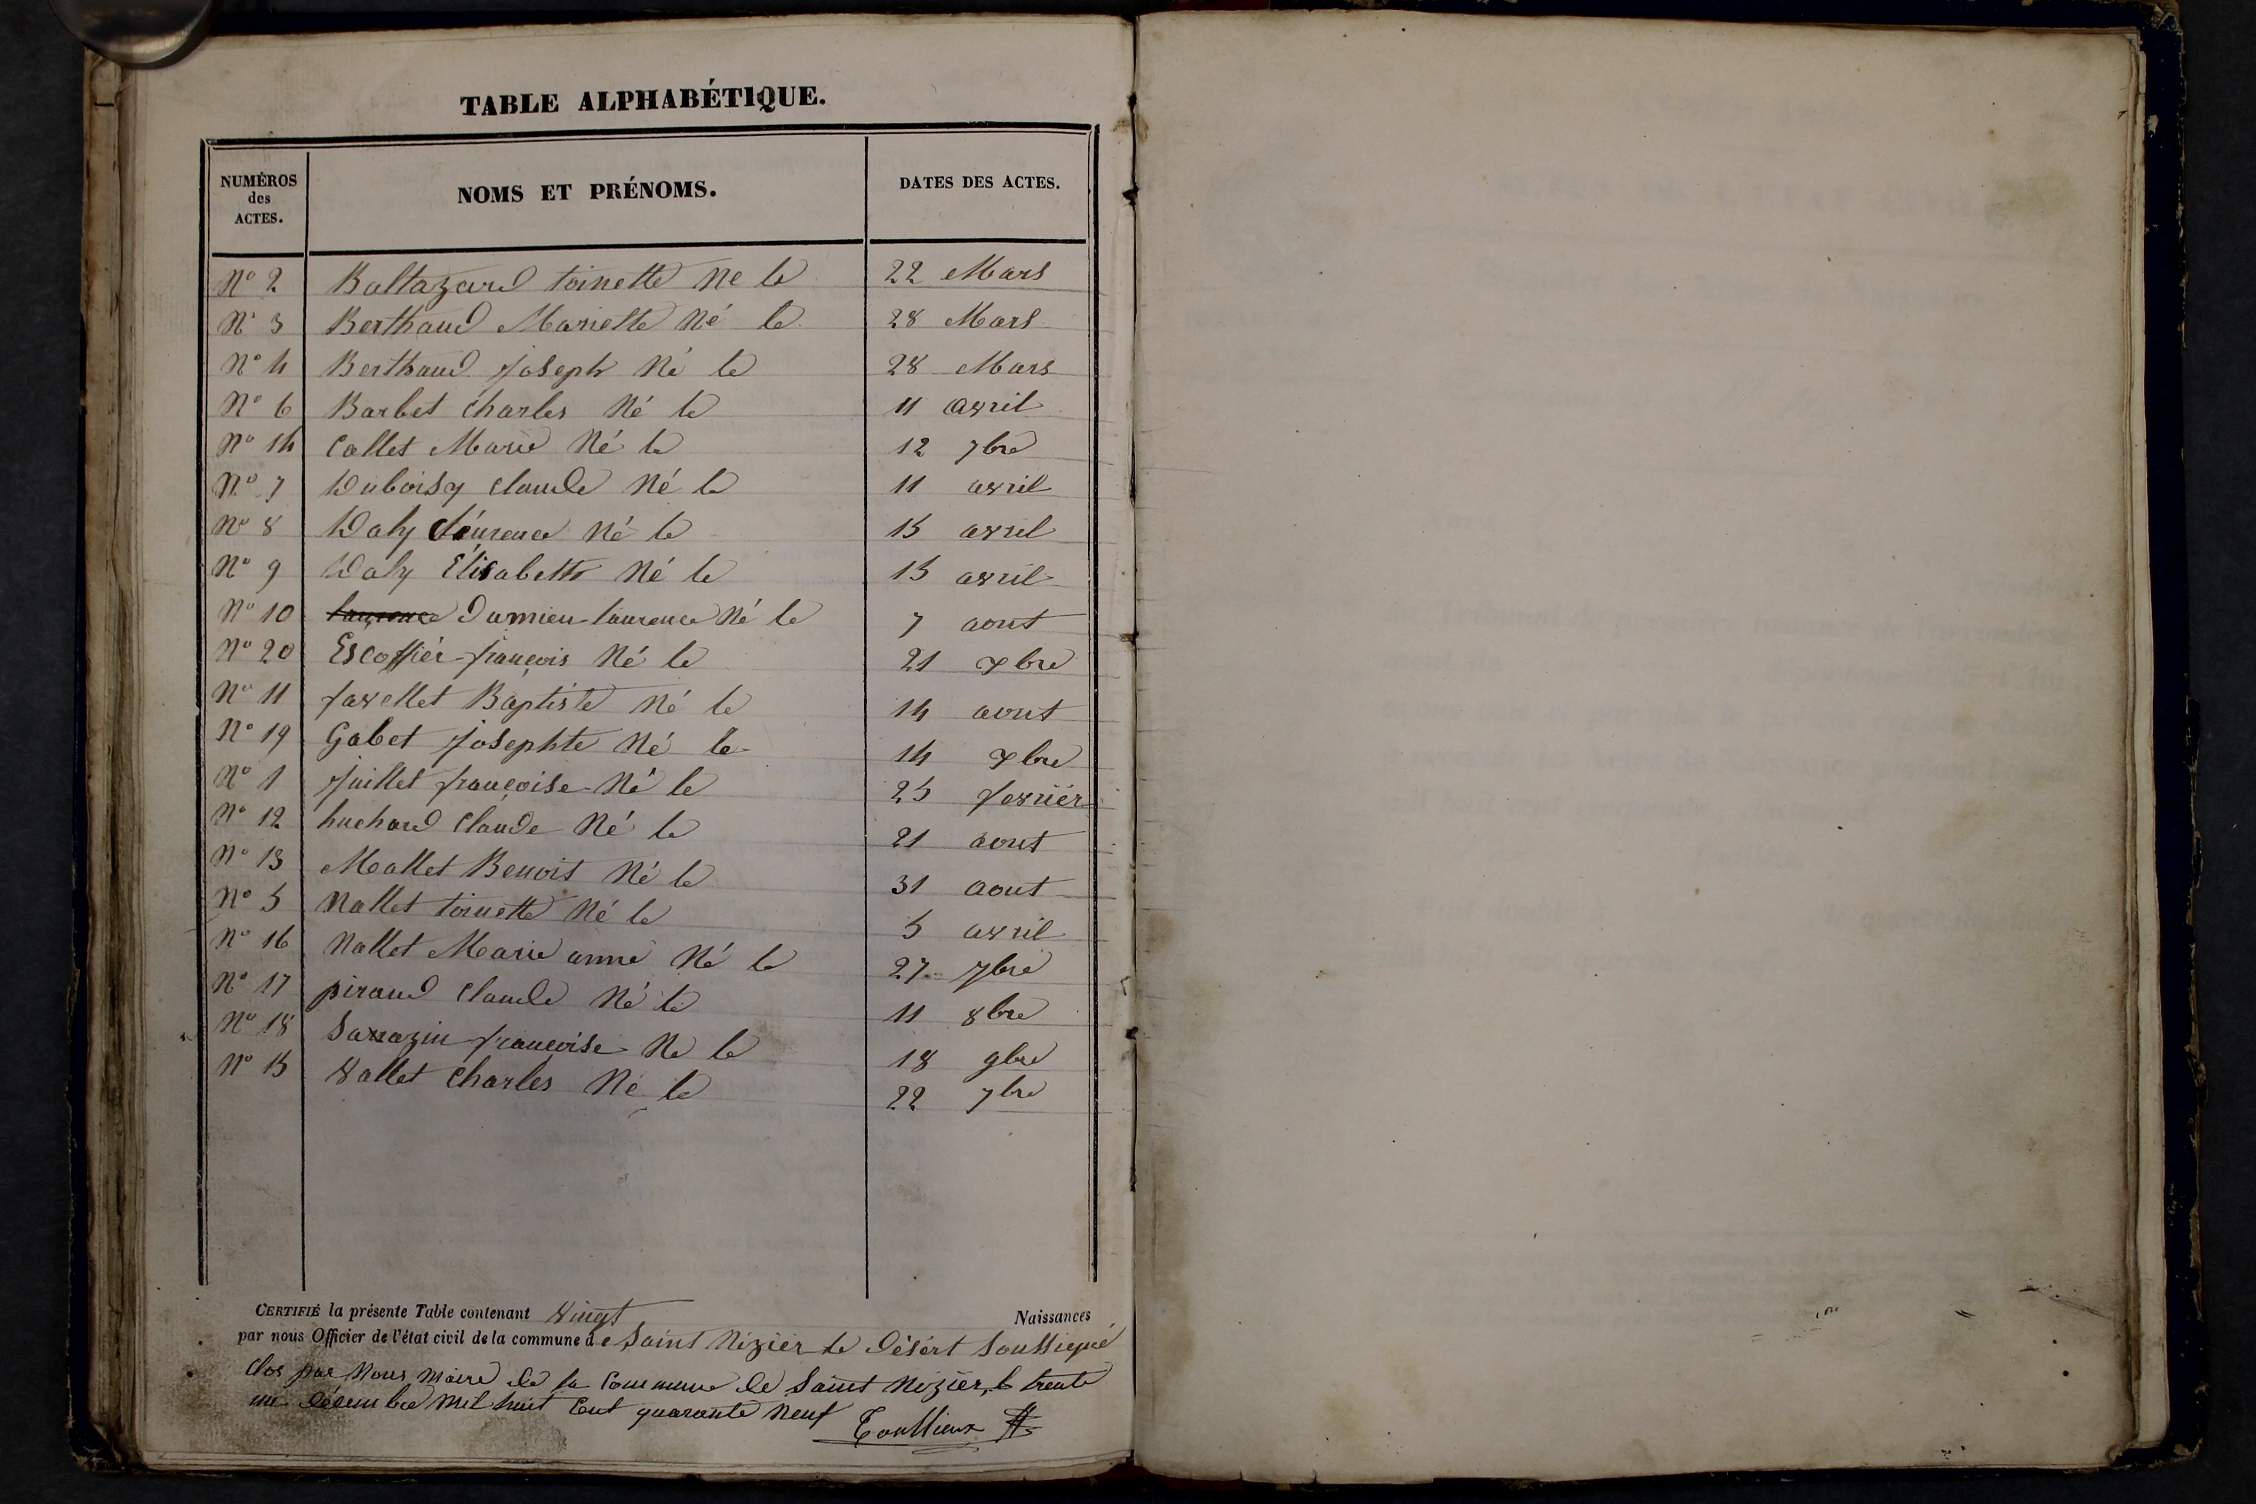 TABLE ALPHABÉTIQUE.
NUMÉROS des ACTES. NOMS ET PRÉNOMS. DATES DES ACTES.
No 2 Baltazard toinette Ne le 22 Mars
No 3 Berthaud Mariette Né le 28 Mars
No 4 Berthaud Joseph Né le 28 Mars
No 6 Barbet Charles Né le 11 avril
No 14 Collet Marie Né le 12 7bre
No 7 Duboisy Claude Né le 11 avril
No 8 Daly Laurence Né le 15 avril
No 9 Daly Élisabeth Né le 15 avril
No 10 laurence Damien laurence Né le 7 aout
No 20 Escoffiér françois Né le 21 Xbre
No 11 favellet Baptiste Né le 14 aout
No 19 Gabet Josephte Né le 14 Xbre
No 1 Juillet françoise Né le 25 fevriér
No 12 huchard Claude Né le 21 aout
No 13 Mallet Benoit Né le 31 aout
No 5 Nallet toinette Né le 5 avril
No 16 Nallet Marie anne Né le 27 7bre
No 17 piraud Claude Né le 11 8bre
No 18 Sarrazin françoise Ne le 18 9bre
No 15 Vallet Charles Né le 22 7bre
CERTIFIÉ la présente Table contenant Vingt Naissances
par nous Officier de l'état civil de la commune de Saint Nizier le Désért Soussigné
Clos par Nous Maire de la Commune de Saint Nizier, le trente
un décembre mil huit Cent quarante Neuf